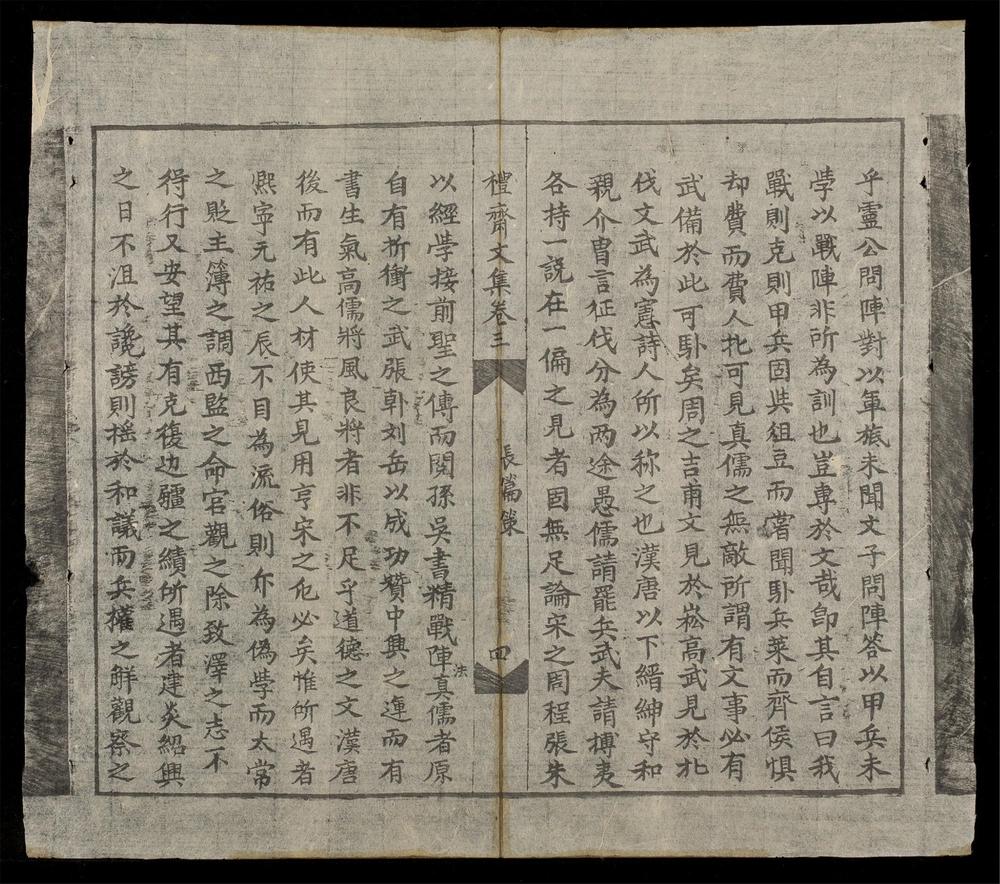 乎靈公問陣對以軍旅未聞文子問陣答以甲兵未
學以戰陣非所為訓也豈專於文哉卽其自言曰我
戰則克則甲兵固與俎豆而嘗聞卧兵萊而齊侯惧
却費而費人北可見真儒之無敵所謂有文事必有
武備於此可卧矣周之吉甫文見於崧高武見於北
伐文武為憲詩人所以称之也漢唐以下縉紳守和
親介冑言征伐分為两途愚儒請罷兵武夫請搏夷
各持一説在一偏之見者固無足論宋之周程張朱
禮齋文集卷三
長篇策
四
以經學接前聖之傳而閱孫吳書精戰陣法真儒者原
自有折衝之武張韩刘岳以成功賛中興之運而有
書生氣高儒將風良將者非不足乎道德之文漢唐
後而有此人材使其見用亨宋之化必矣惟所遇者
熙寧元祐之辰不目為流俗則斥為偽學而太常
之貶主簿之調西監之命宮觀之除致澤之志不
得行又安望其有克復边疆之績所遇者建炎紹興
之日不沮於讒謗則摇於和議而兵權之鮮觀察之